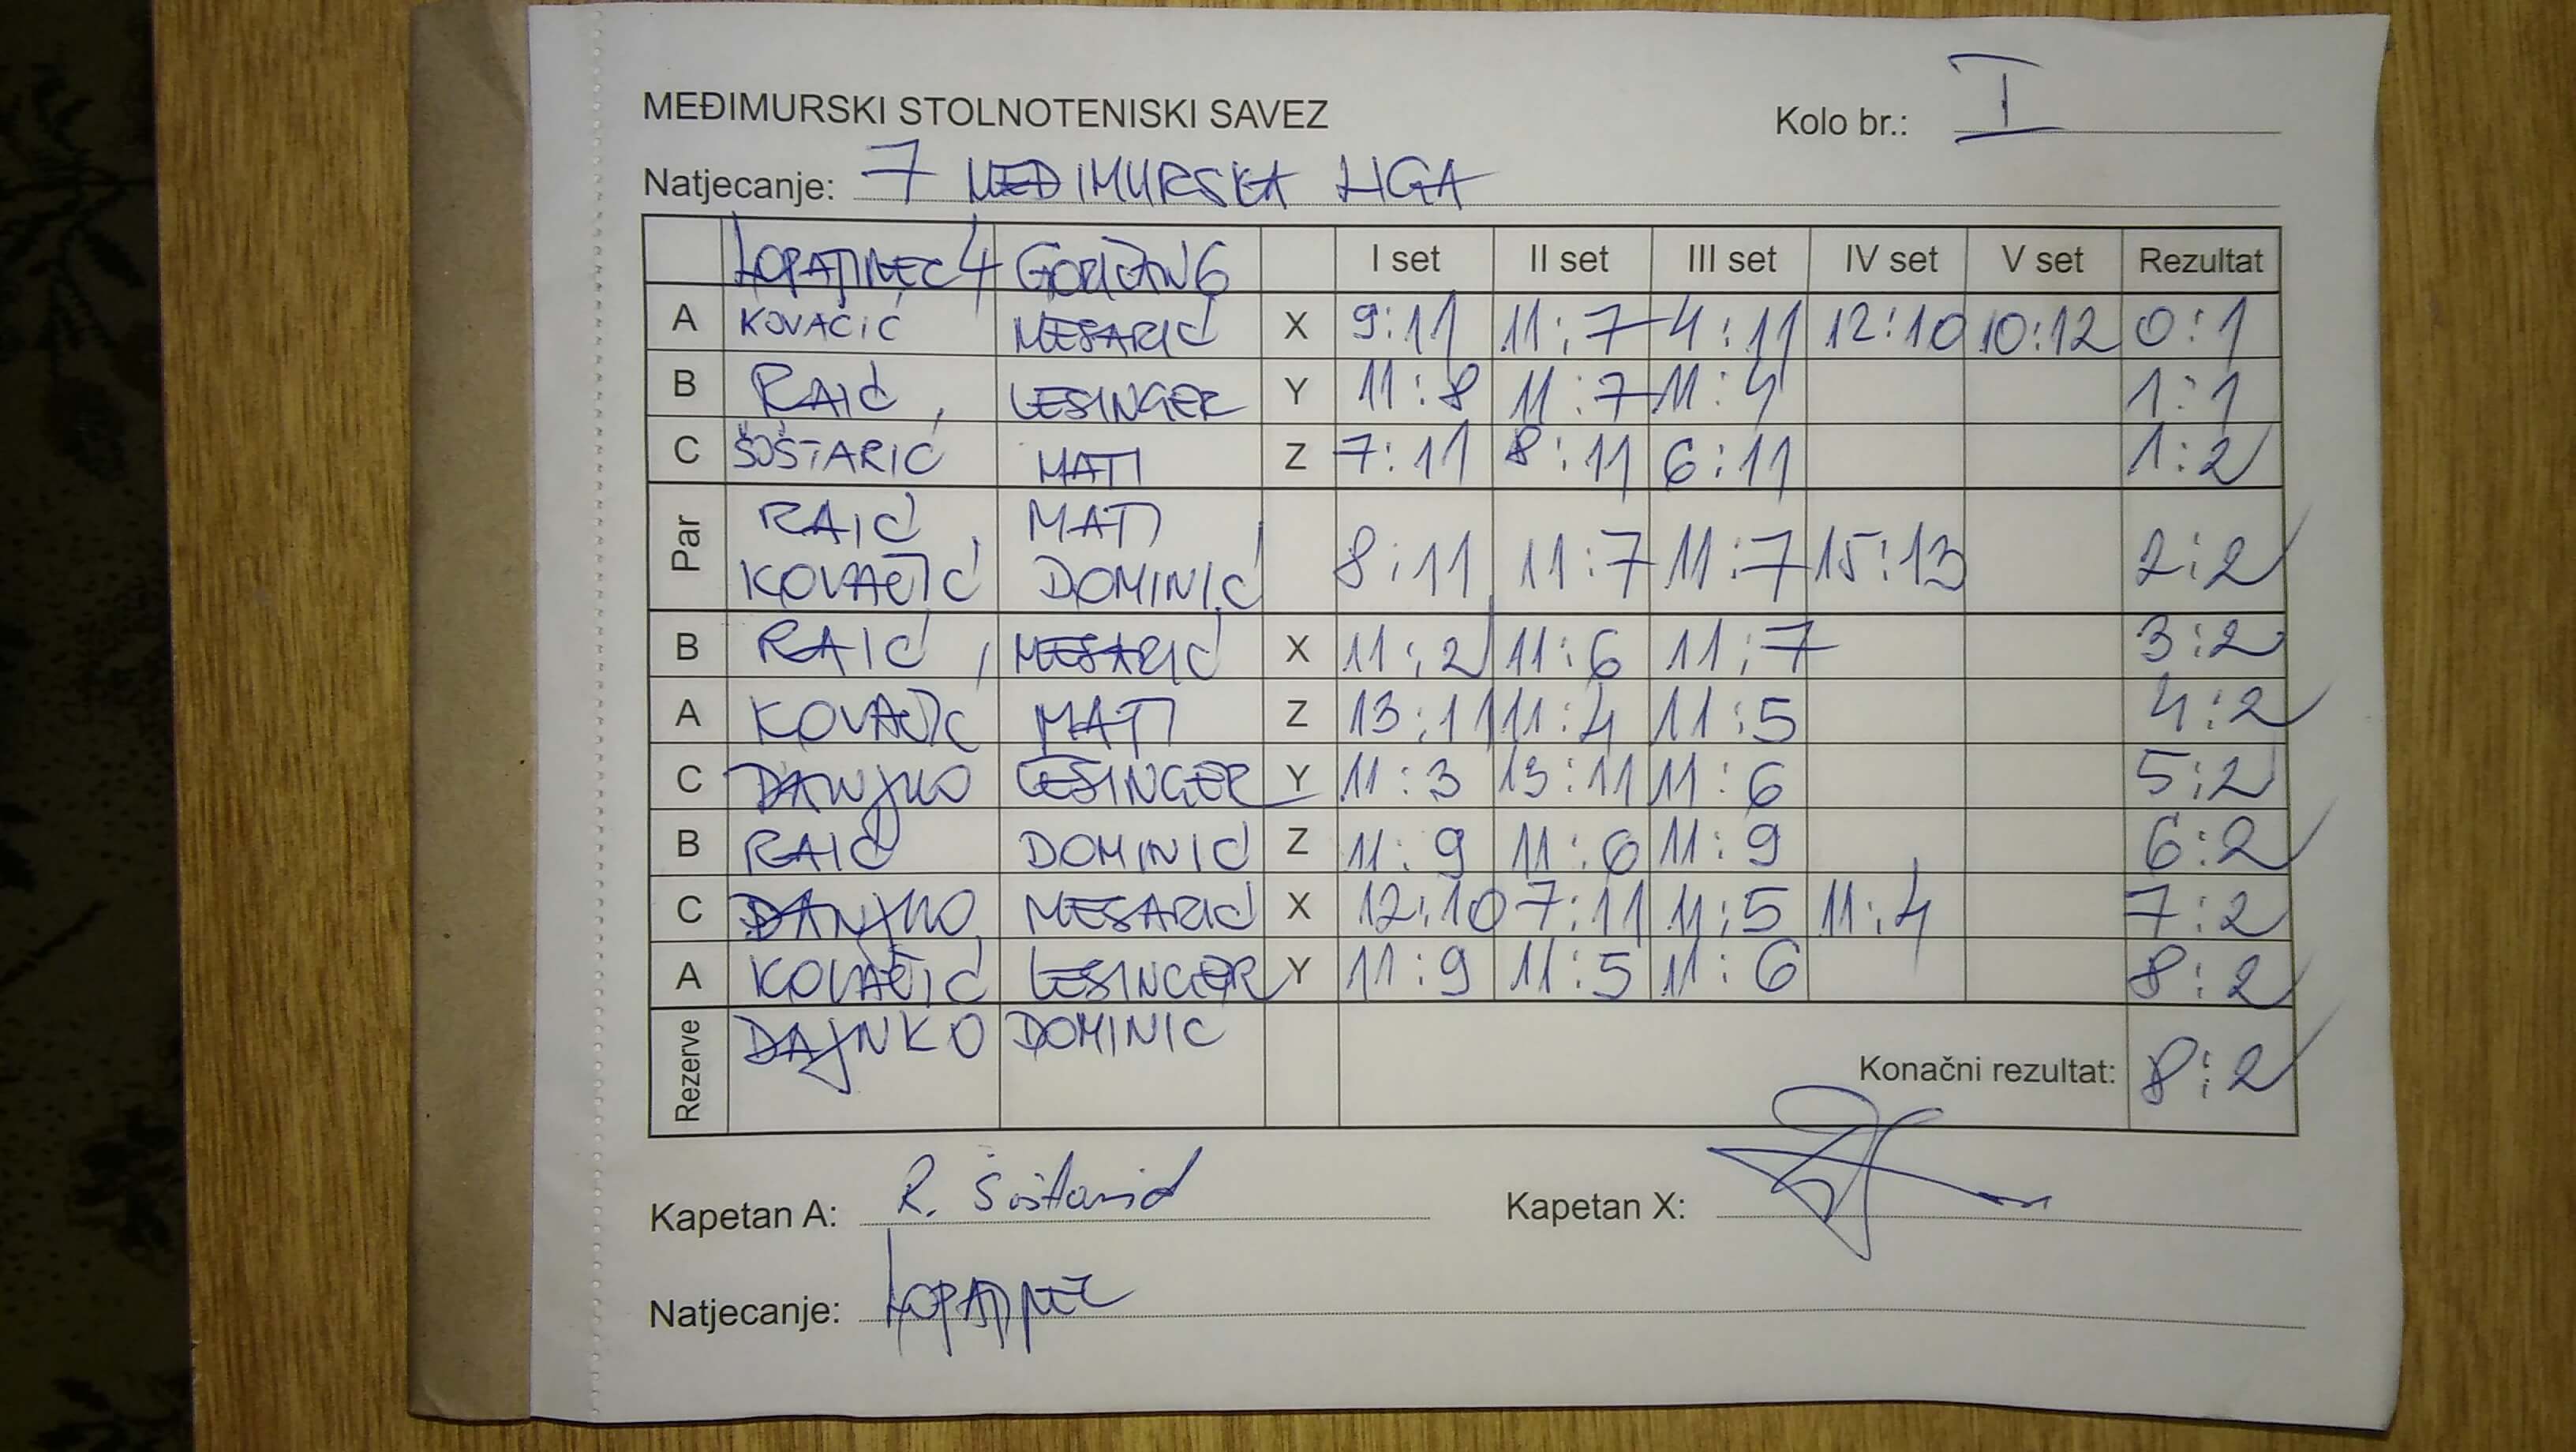 MEĐIMURSKI STOLNOTENISKI SAVEZ Kolo br.: I
Natjecanje: 7 MEĐIMURSKA LIGA
LOPATINEC 4 GORIČAN 6 I set II set III set IV set V set Rezultat
A KOVAČIĆ MESARIĆ X 9:11 11:7 4:11 12:10 10:12 0:1
B RAIĆ LESINGER Y 11:8 11:7 11:4 1:1
C ŠOŠTARIĆ MATI Z 7:11 8:11 6:11 1:2
Par RAIĆ, MATI
KOVAČIĆ DOMINIĆ 8:11 11:7 11:7 15:13 2:2
B RAIĆ, MESARIĆ X 11:2 11:6 11:7 3:2
A KOVAČIĆ MATI Z 13:11 11:4 11:5 4:2
C LESINGER Y 11:3 13:11 11:6 5:2
B RAIĆ DOMINIĆ Z 11:9 11:6 11:9 6:2
C MESARIĆ X 12:10 7:11 11:5 11:4 7:2
A KOVAČIĆ LESINGER Y 11:9 11:5 11:6 8:2
Rezerve DAJNKO DOMINIC
Konačni rezultat: 8:2
Kapetan A: R. Šoštarić Kapetan X:
Natjecanje: LOPATINEC